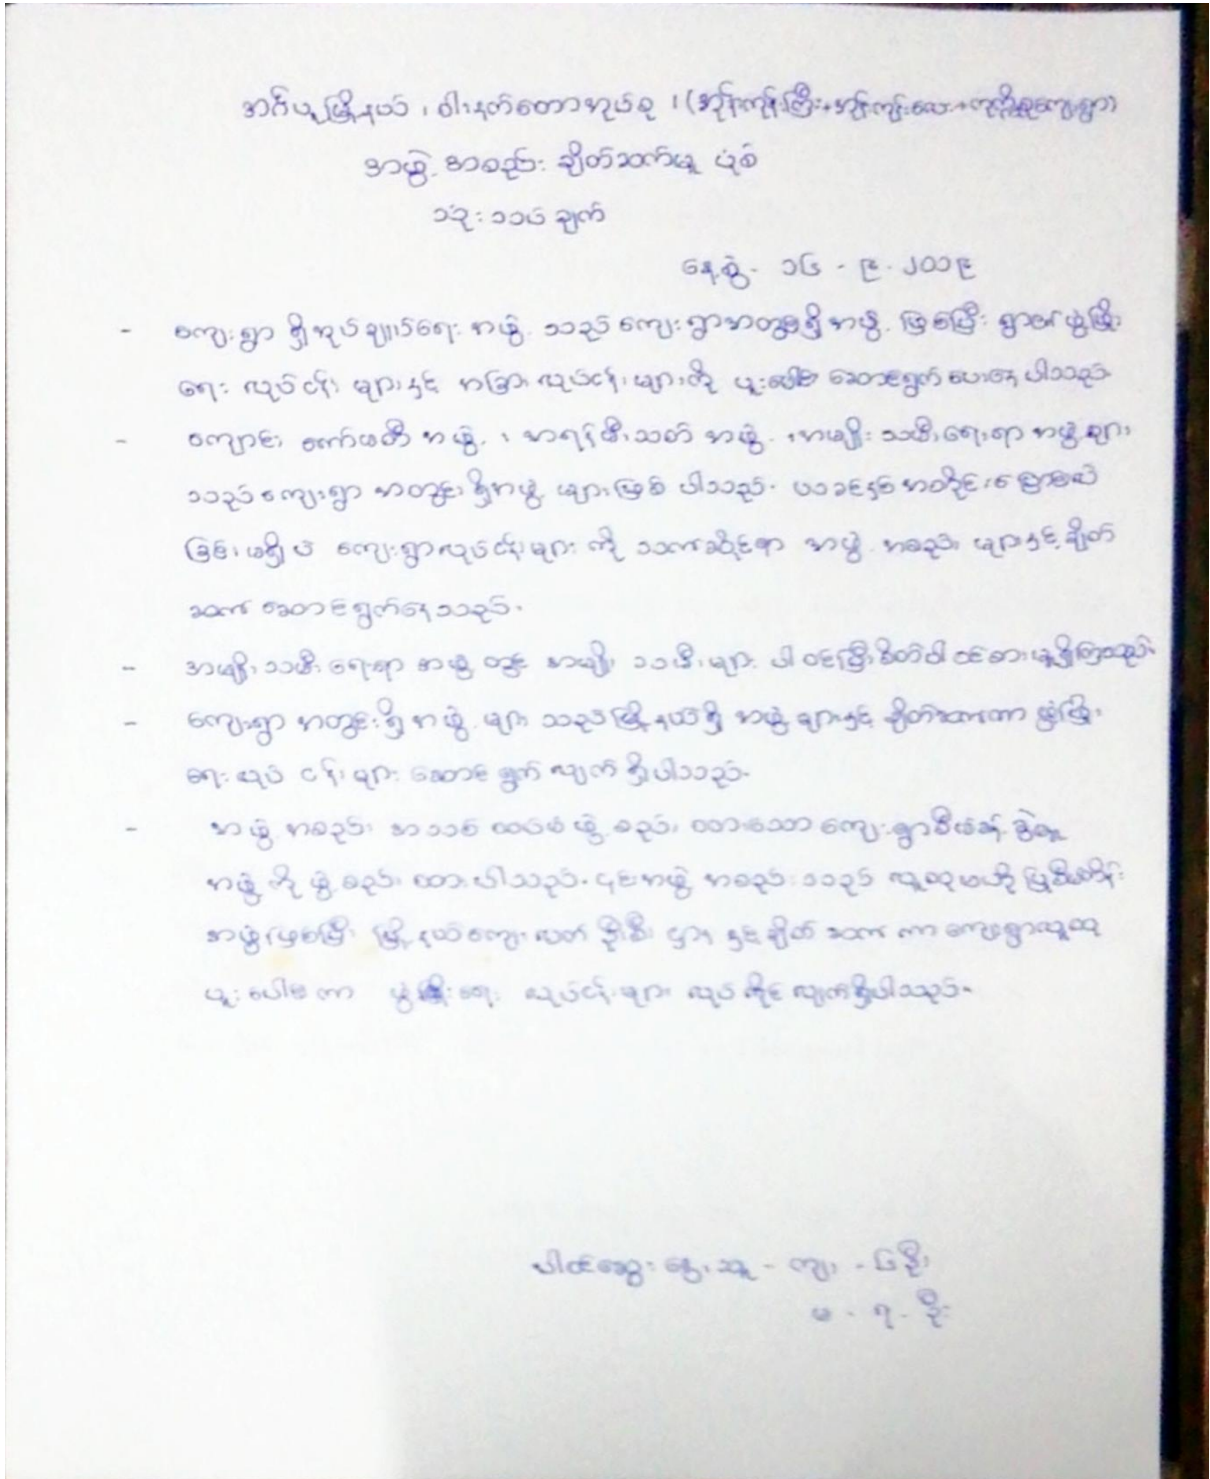 အင်္ဂပူမြို့နယ်၊ ဝါးနက်တောအုပ်စု၊ (အုန်းကုန်းကြီး+အုန်းကုန်းလေး+ကုက္ကိုစုကျေးရွာ)
အဖွဲ့အစည်း ချိတ်ဆက်မှု ပုံစံ
သုံးသပ်ချက်
နေ့စွဲ - ၁၆ - ၉ - ၂၀၁၉
- ကျေးရွာ ရှိအုပ်ချုပ်ရေး အဖွဲ့ သည် ကျေးရွာအတွင်းရှိအဖွဲ့ ဖြစ်ပြီး ရွာ၏ ဖွံ့ဖြိုး
ရေး လုပ်ငန်း များနှင့် အခြား လုပ်ငန်းများကို ပူးပေါင်း ဆောင်ရွက် ပေးနေ ပါသည်။
- ကျောင်း ကော်မတီ အဖွဲ့ ၊ အရန်မီးသတ် အဖွဲ့ ၊ အမျိုး သမီးရေးရာ အဖွဲ့များ
သည် ကျေးရွာ အတွင်းရှိအဖွဲ့ များဖြစ် ပါသည်။ ယခင်နှစ် အတိုင်း ပြောင်းလဲ
ခြင်းမရှိပဲ ကျေးရွာလုပ်ငန်းများ ကို သက်ဆိုင်ရာ အဖွဲ့ အစည်း များနှင့်ချိတ်
ဆက် ဆောင်ရွက်နေသည်။
- အမျိုးသမီးရေးရာ အဖွဲ့ တွင် အမျိုး သမီးများ ပါဝင်ပြီးစိတ်ပါဝင်စားမှုရှိကြသည်။
- ကျေးရွာ အတွင်းရှိ အဖွဲ့ များ သည်မြို့နယ်ရှိ အဖွဲ့များနှင့် ချိတ်ဆက်ကာ ဖွံ့ဖြိုး
ရေး လုပ် ငန်းများ ဆောင်ရွက် လျက် ရှိပါသည်။
- အဖွဲ့ အစည်း အသစ် ထပ်မံဖွဲ့ စည်း ထားသော ကျေးရွာစီမံခန့်ခွဲမှု
အဖွဲ့ ကို ဖွဲ့ စည်း ထားပါသည်။ ၎င်းအဖွဲ့ အစည်းသည် လူထုဗဟိုပြုစီမံကိန်း
အဖွဲ့ဖြစ်ပြီး မြို့နယ်ကျေး လက် ဦးစီး ဌာန နှင့်ချိတ် ဆက် ကာ ကျေးရွာလူထု
ပူးပေါင်း ကာ ဖွံ့ဖြိုးရေး လုပ်ငန်းများ လုပ်ကိုင်လျက်ရှိပါသည်။
ပါဝင်ဆွေးနွေးသူ - ကျား - ၆ ဦး
မ - ၇ - ဦး